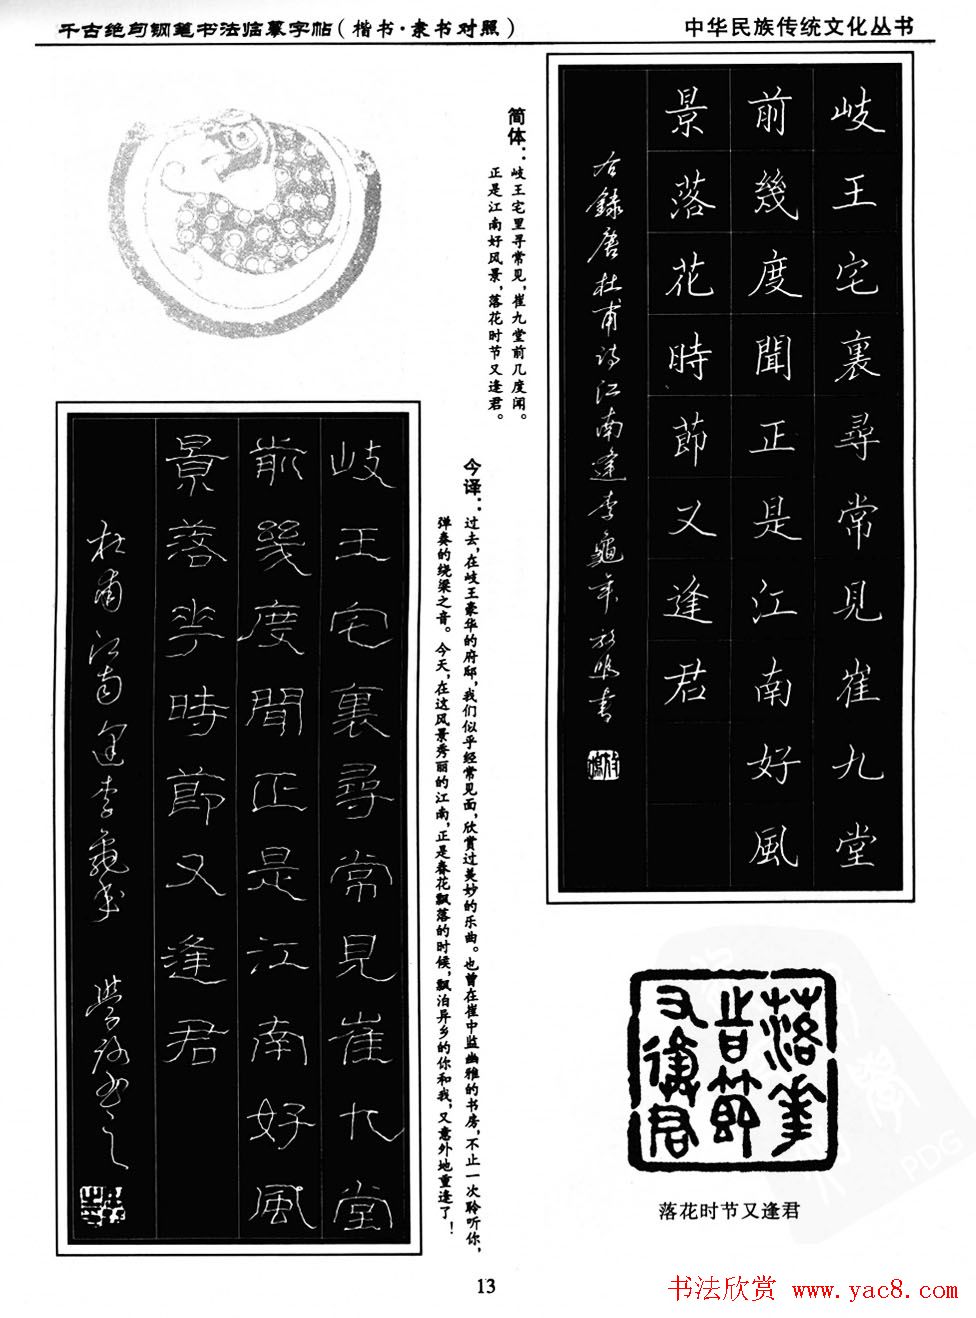 千古绝句钢笔书法临摹字帖（楷书·隶书对照）
中华民族传统文化丛书
岐王宅裏尋常見崔九堂
前幾度聞正是江南好風
景落花時節又逢君
右錄唐杜甫诗江南逢李龜年 放鸣書
简体：岐王宅里寻常见，崔九堂前几度闻。
正是江南好风景，落花时节又逢君。
今译：过去，在岐王豪华的府邸，我们似乎经常见面，欣赏过美妙的乐曲。也曾在崔中监幽雅的书房，不止一次聆听你，
弹奏的绕梁之音。今天，在这风景秀丽的江南，正是春花飘落的时候，飘泊异乡的你和我，又意外地重逢了！
岐王宅裏尋常見崔九堂
前幾度聞正是江南好風
景落花時節又逢君
杜甫江南逢李龜年
落花
時節
又逢君
落花时节又逢君
PDG
13
书法欣赏 www.yac8.com